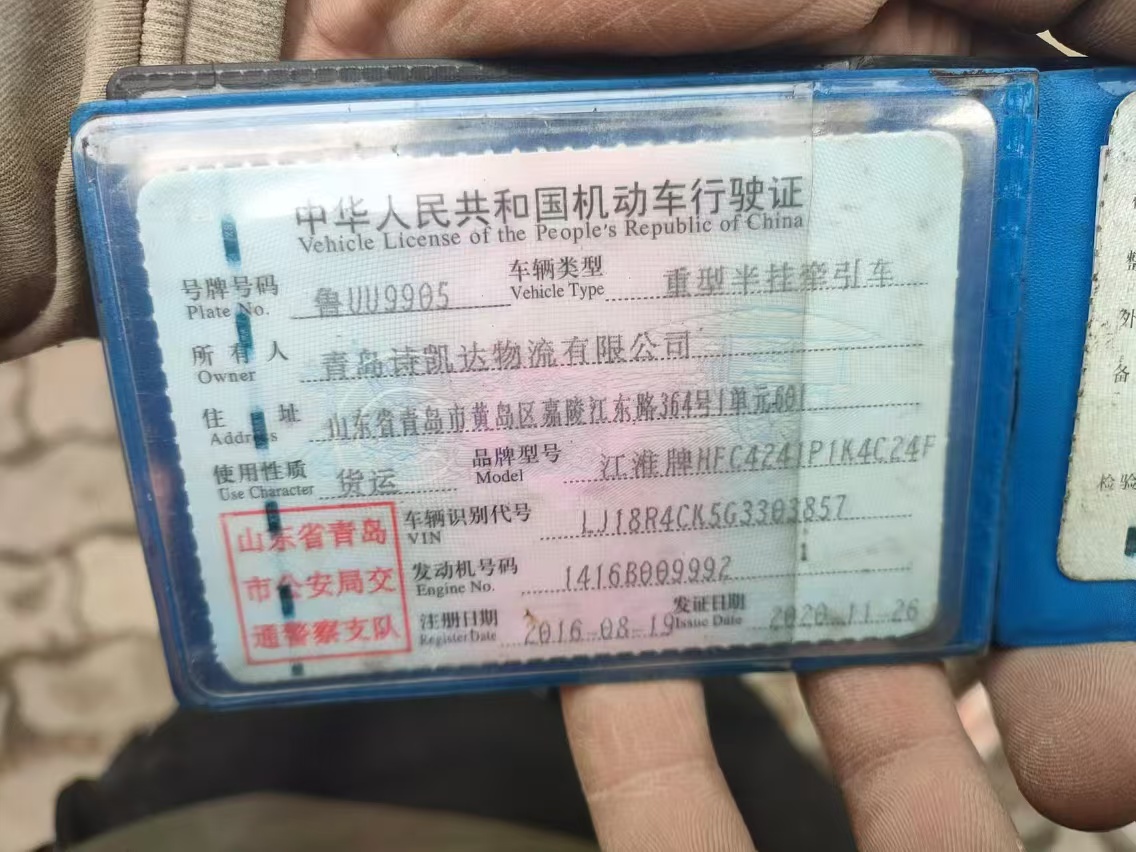 中华人民共和国机动车行驶证
Vehicle License of the People's Republic of China
号牌号码 鲁UU9905 车辆类型 重型半挂牵引车
Plate No. Vehicle Type
所有人 青岛诗凯达物流有限公司
Owner
住址 山东省青岛市黄岛区嘉陵江东路364号1单元601
Address
使用性质 货运 品牌型号 江淮牌HFC4241P1K4C24F
Use Character Model
山东省青岛
市公安局交
通警察支队
车辆识别代号 LJ18R4CK5G3303857
VIN
发动机号码 1416B009992
Engine No.
注册日期 2016-08-19 发证日期 2020-11-26
Register Date Issue Date
整
外
备
检验